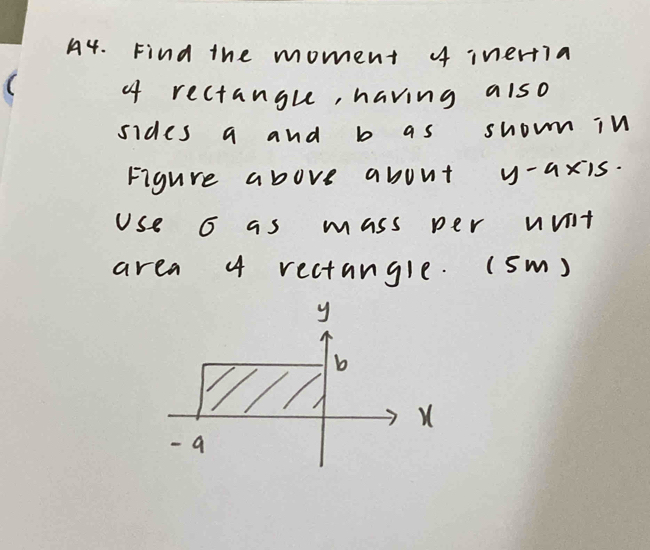 A4. Find the moment of inertia
of rectangle, having also
sides a and b as shown in
Figure above about y-axis.
Use σ as mass per unit
area of rectangle. (5m)
y
b
x
-a